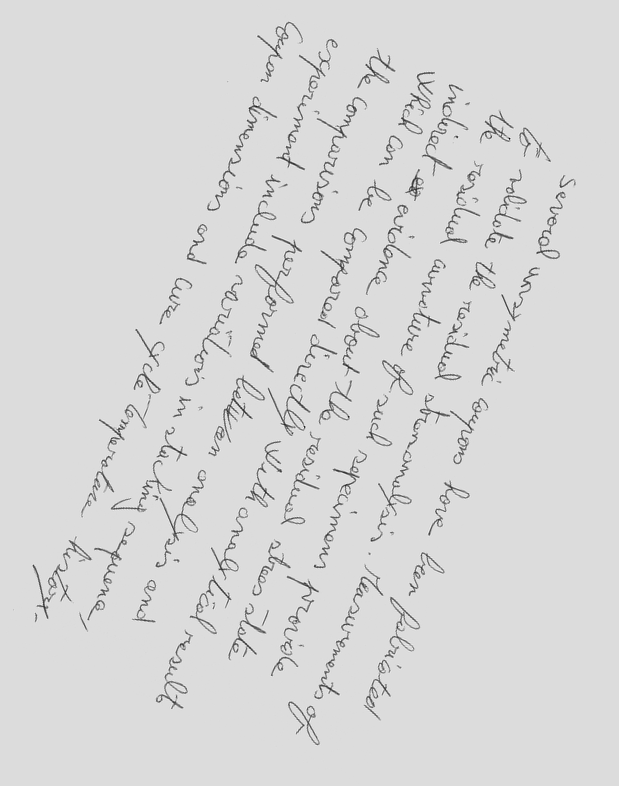 Several unsymmetric coupons have been fabricated
to validate the residual stress analysis. Measurements of
the residual curvature of such specimens provide
indirect evidence about the residual stress state
which can be compared directly with analytical result
the comparisons performed between analysis and
experiment include variations in stacking sequence,
coupon dimensions and cure cycle temperature history.